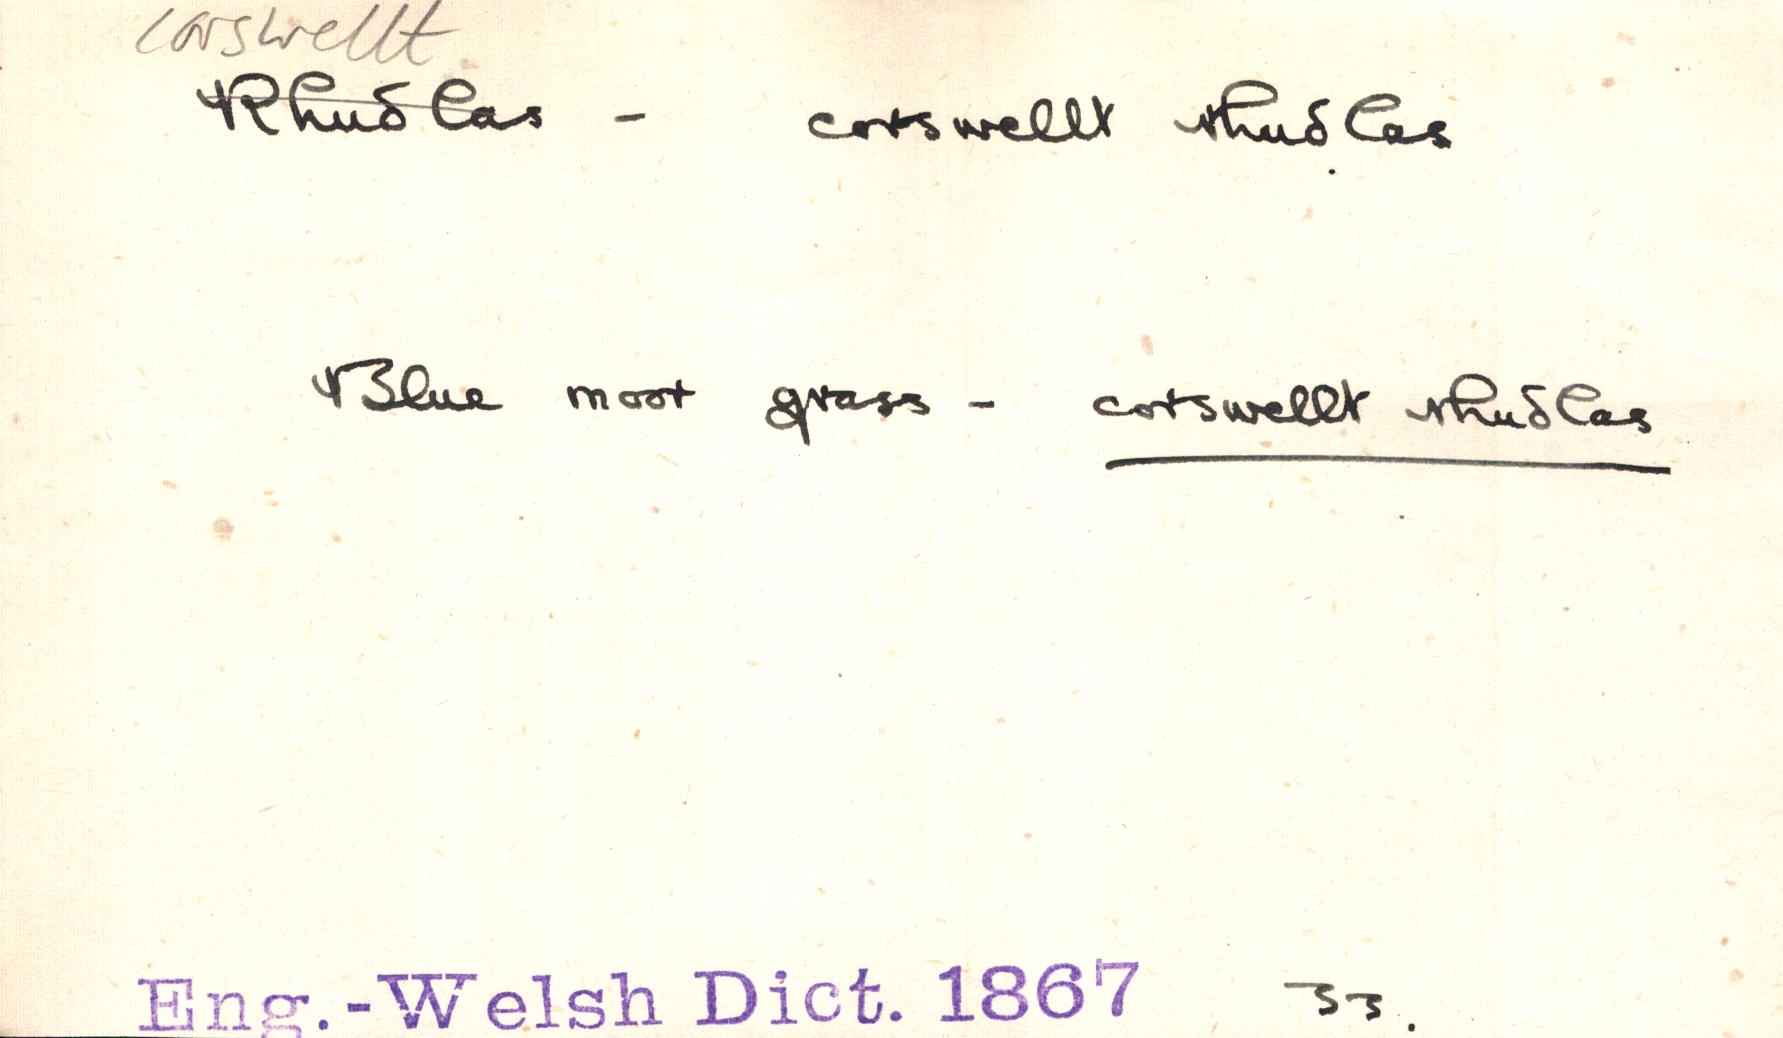 corswellt
Rhuδlas - corswellt rhuδlas
Blue moor grass - corswellt rhuδlas
Eng.-Welsh Dict. 1867 33.